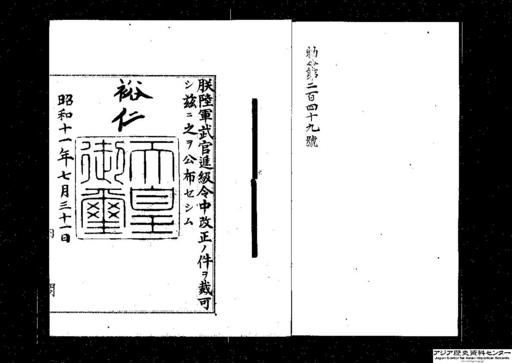 勅令第二百四十九號
朕陸軍武官進級令中改正ノ件ヲ裁可
シ茲ニ之ヲ公布セシム
裕仁
天皇
御璽
昭和十一年七月三十一日
内閣
アジア歴史資料センター
Japan Center for Asian Historical Records